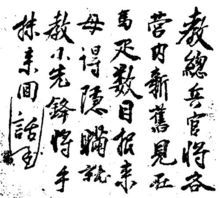 教總兵官將各
營內新舊見在
馬疋數目报来
毋得隱瞞就
教小先鋒將手
抹来回話